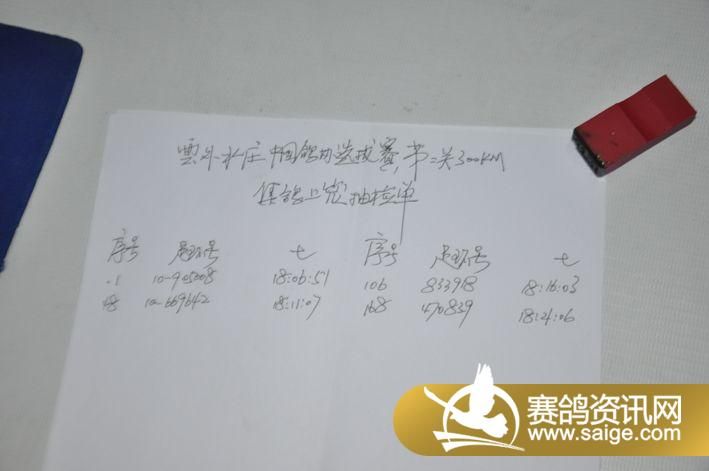 雲外水庄中国鸽协选拔赛,第二关300KM
集鸽上笼抽检单
序号 足环号 七 序号 足环号 七
.1 10-905008 18:06:51 106 833918 18:16:03
48 10-669642 18:11:07 168 470839 18:24:06
赛鸽资讯网
www.saige.com